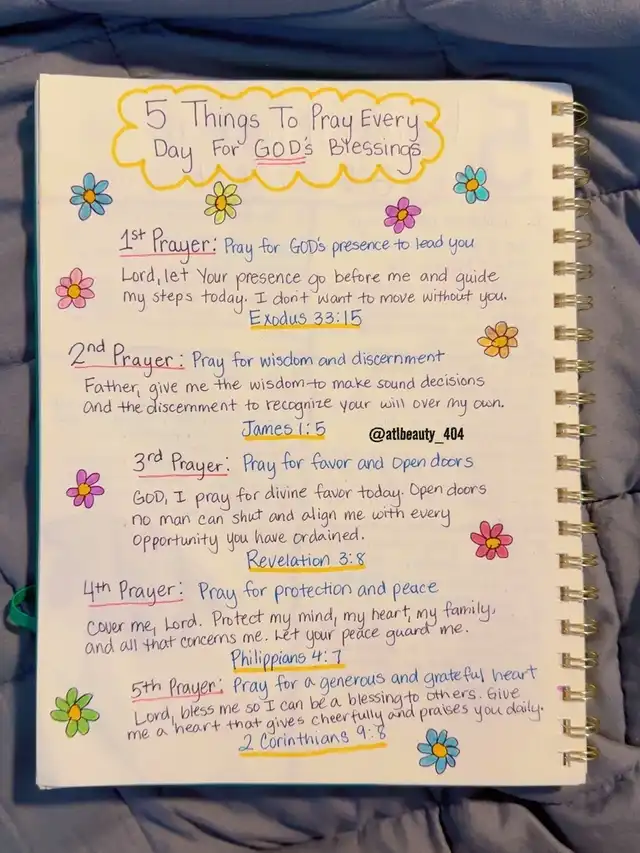 5 Things To Pray Every
Day For GOD's Blessings
1st Prayer: Pray for GOD's presence to lead you
Lord, let Your presence go before me and guide
my steps today. I don't want to move without you.
Exodus 33:15
2nd Prayer: Pray for wisdom and discernment
Father, give me the wisdom to make sound decisions
and the discernment to recognize your will over my own.
James 1:5
@atlbeauty_404
3rd Prayer: Pray for favor and open doors
GOD, I pray for divine favor today. Open doors
no man can shut and align me with every
opportunity you have ordained.
Revelation 3:8
4th Prayer: Pray for protection and peace
Cover me, Lord. Protect my mind, my heart, my family,
and all that concerns me. Let your peace guard me.
Philippians 4:7
5th Prayer: Pray for a generous and grateful heart
Lord, bless me so I can be a blessing to others. Give
me a heart that gives cheerfully and praises you daily.
2 Corinthians 9:8